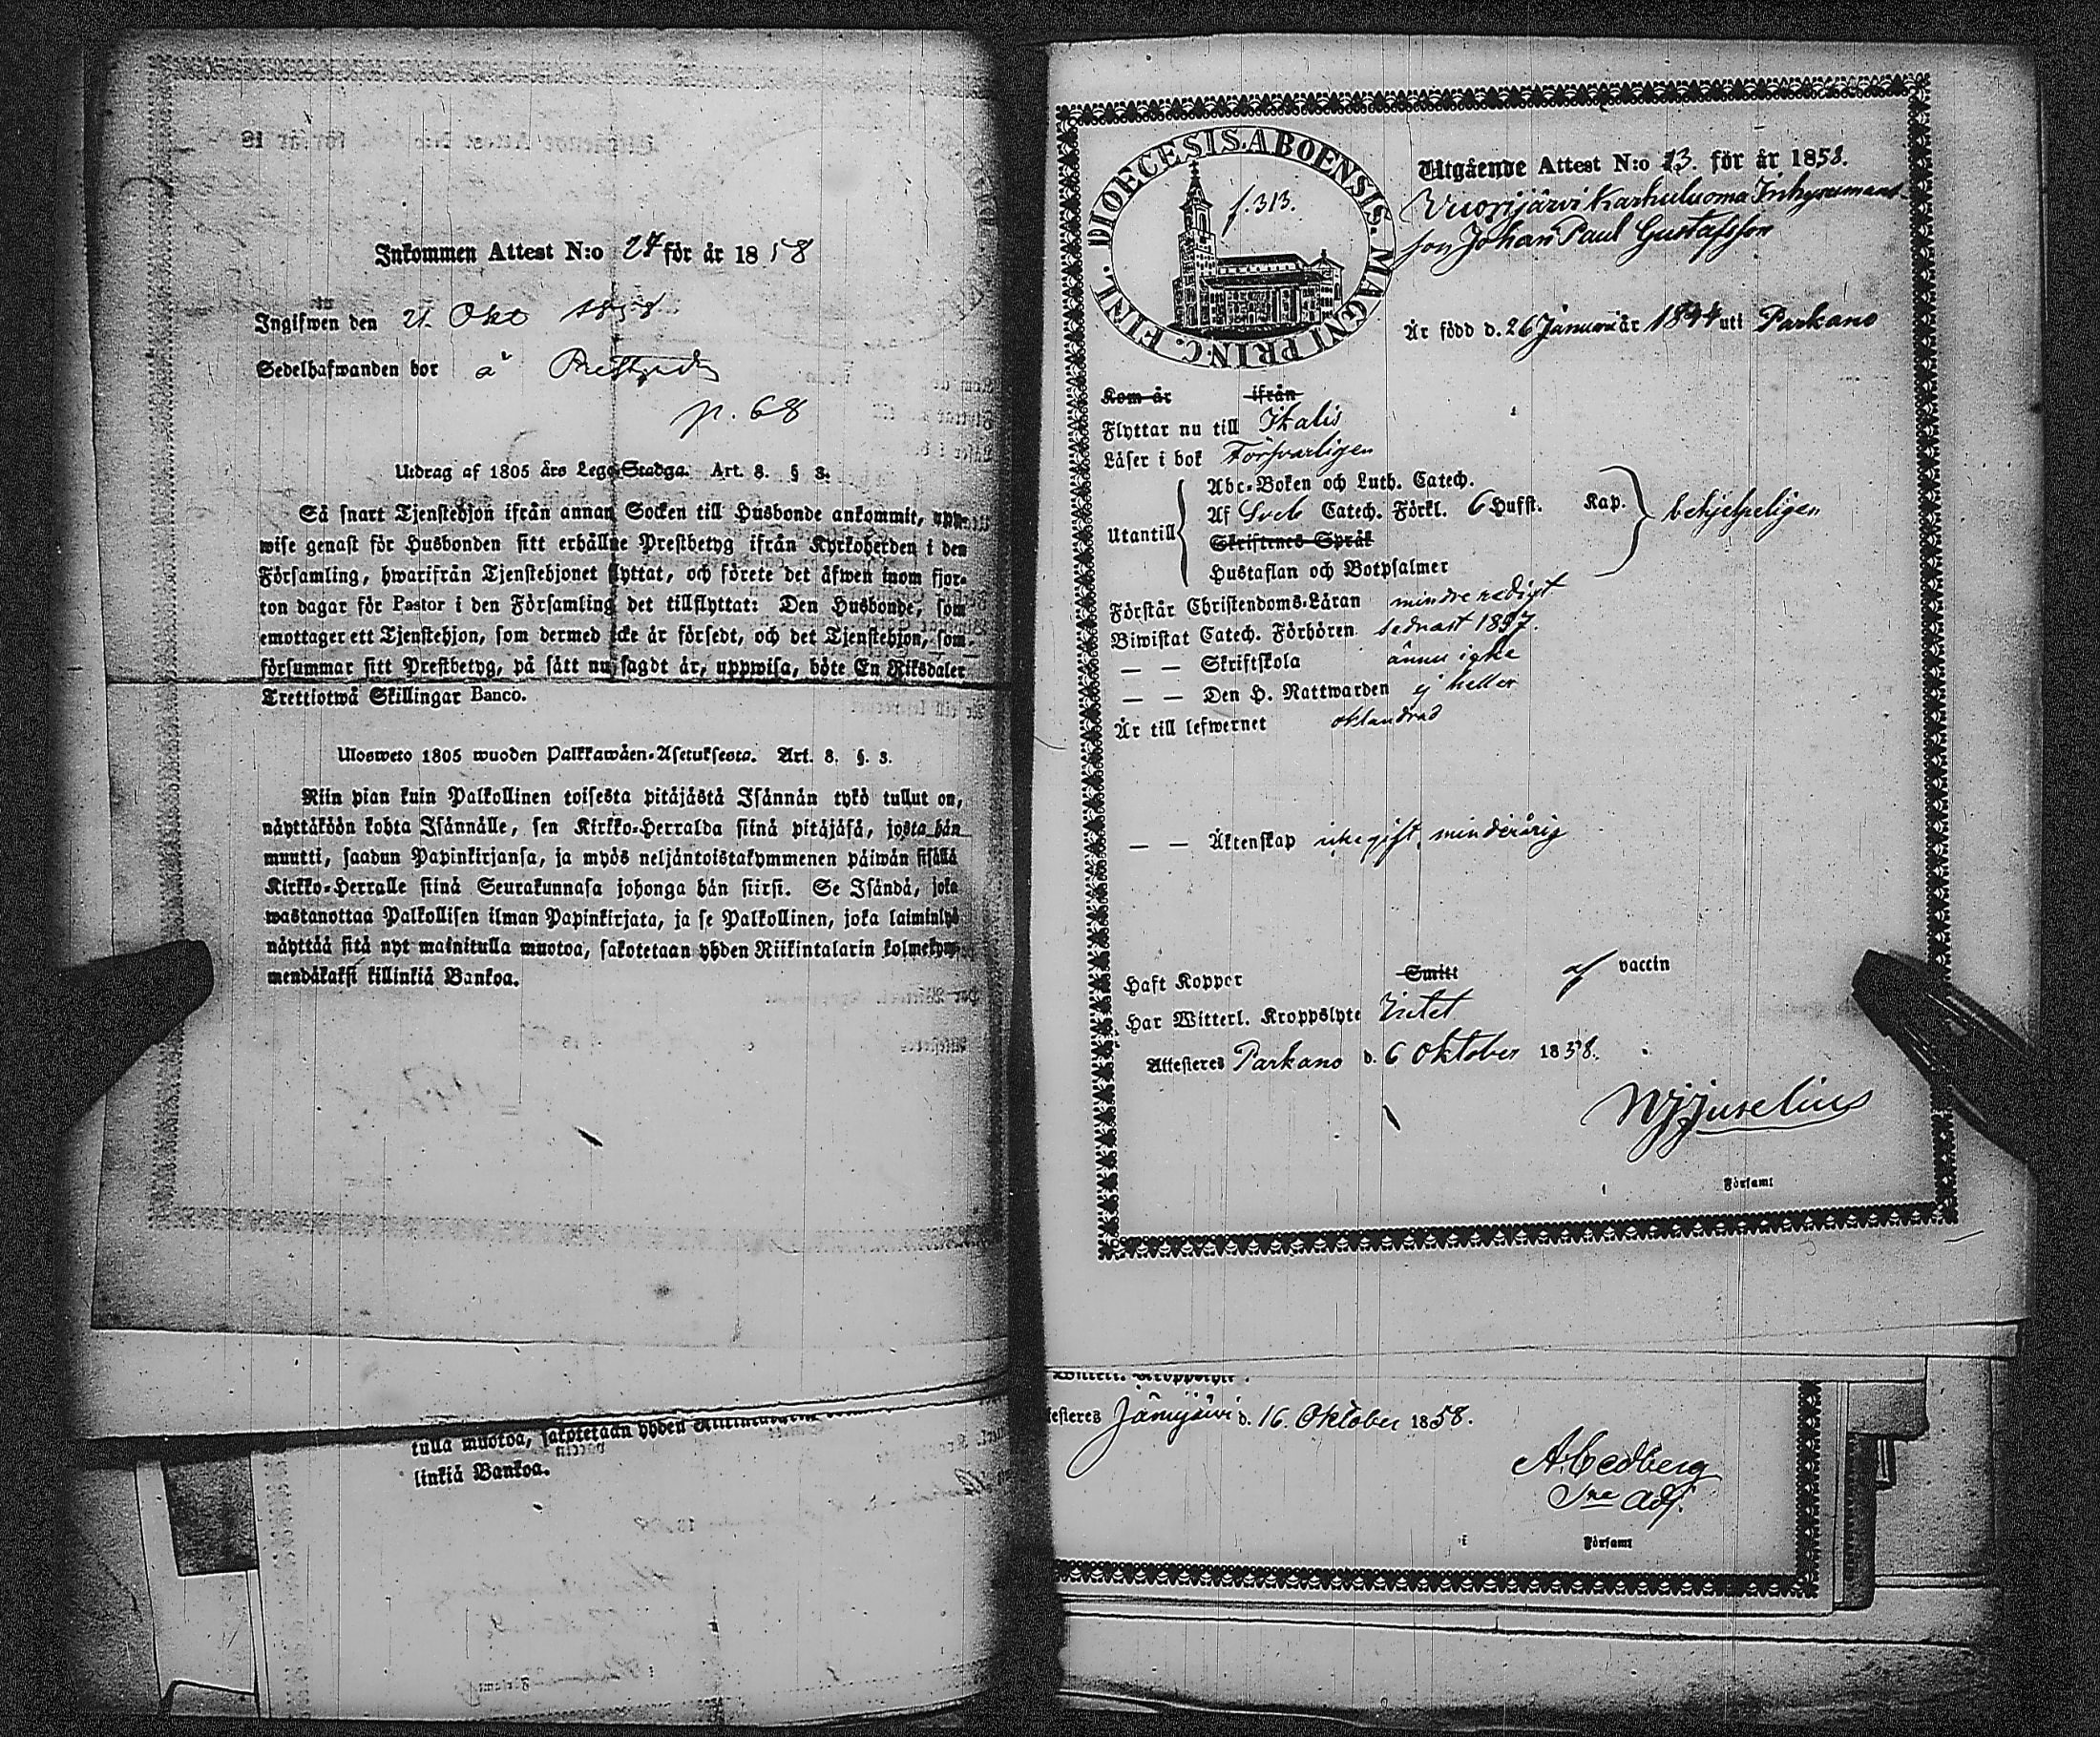 Inkommen Attest N:o 24 för år 1858
Ingifwen den 21 Okt 1858
Sedelhafwanden bor å
p. 68
Utdrag af 1805 års Lego-Stadga. Art. 8. § 3.
Så snart Tjenstehjon ifrån annan Socken till Husbonde ankommit, upp-
wise genast för Husbonden sitt erhållne Prestbetyg ifrån Kyrkoherden i den
Församling, hwarifrån Tjenstehjonet flyttat, och förete det äfwen inom fjor-
ton dagar för Pastor i den Församling det tillflyttat: Den Husbonde, som
emottager ett Tjenstehjon, som dermed icke är försedt, och det Tjenstehjon, som
försummar sitt Prestbetyg, på sätt nu sagdt är, uppwisa, böte En Riksdaler
Trettiotwå Skillingar Banco.
Ulosweto 1805 wuoden Palkkawäen-Asetuksesta. Art. 8. §. 3.
Niin pian kuin Palkollinen toisesta pitäjästä Isännän tykö tullut on,
näyttäköön kohta Isännälle, sen Kirkko-Herralda siinä pitäjäsä, josta hän
muutti, saadun Papinkirjansa, ja myös neljäntoistakymmenen päiwän sisällä
Kirkko-Herralle siinä Seurakunnasa johonga hän siirsi. Se Isändä, joka
wastanottaa Palkollisen ilman Papinkirjata, ja se Palkollinen, joka laiminlyö
näyttää sitä nyt mainitulla muotoa, sakotetaan yhden Riikintalarin kolmekym-
mendäkaksi killinkiä Bankoa.
tulla muotoa, sakotetaan yhden
linkiä Bankoa.
DIOECESIS ABOENSIS. MAGNI PRINC. FINL.
f. 313.
Utgående Attest N:o 13. för år 1858.
Vuorijärvi Karhuluoma Inhysesmans
son Johan Paul Gustafsson
Är född d. 26 Januari år 1844 uti Parkano
Kom år ifrån
Flyttar nu till Ikalis
Läser i bok Försvarligen
Abc-Boken och Luth. Catech.
Utantill Af Sveb Catech. Förkl. 6 Hufst. Kap. behjelpeligen
Skriftenes Språk
Hustaflan och Botpsalmer
Förstår Christendoms-Läran mindre redigt
Biwistat Catech. Förhören sednast 1857.
— — Skriftskola ännu icke
— — Den H. Nattwarden ej heller
Är till lefwernet oklandrad
— — Äktenskap icke gift, minderårig
Haft Koppor Smitt af vaccin
Har Witterl. Kroppslyte Intet
Attesteres Parkano d. 6 Oktober 1858.
Juselius
Församl
Witterl. Kroppslyte
testeres Jämijärvi d. 16. Oktober 1858.
A. Cedberg
Sne Adj.
Församl